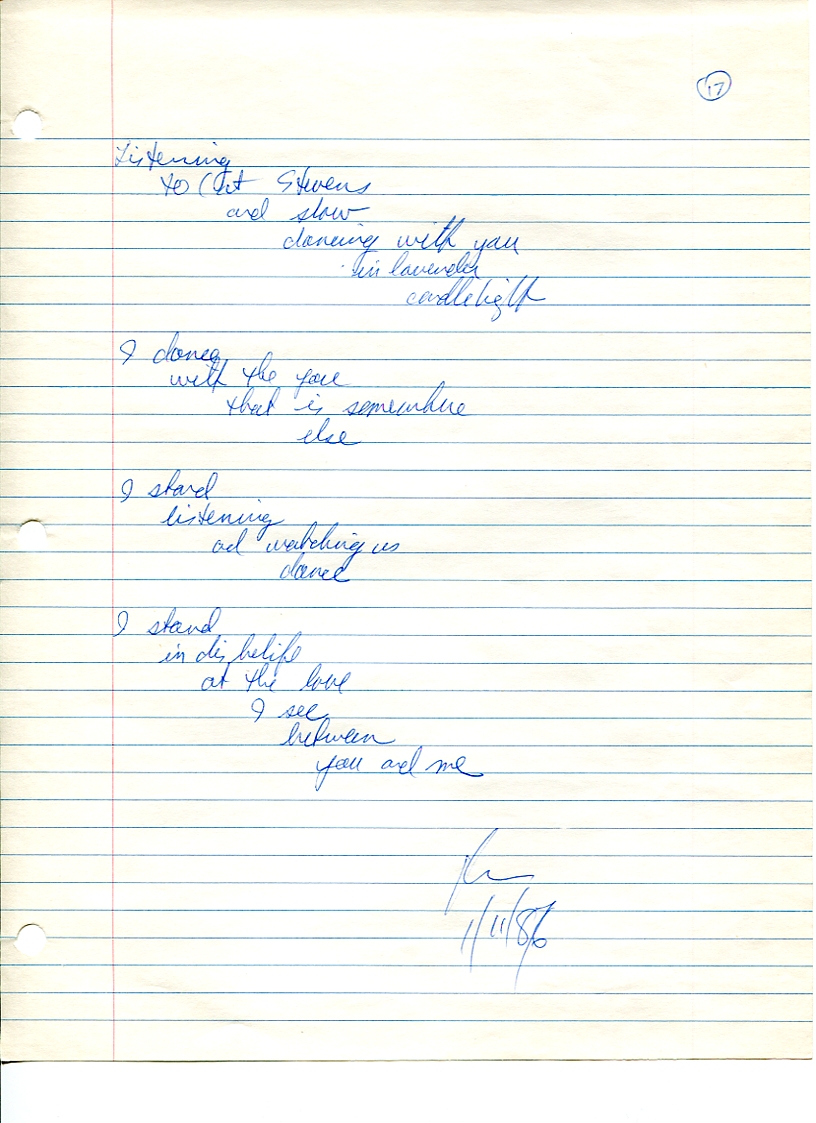 17
Listening
to Cat Stevens
and slow
dancing with you
in lavender
candlelight
I dance
with the you
that is somewhere
else
I stand
listening
and watching us
dance
I stand
in disbelife
at the love
I see
between
you and me
1/11/86